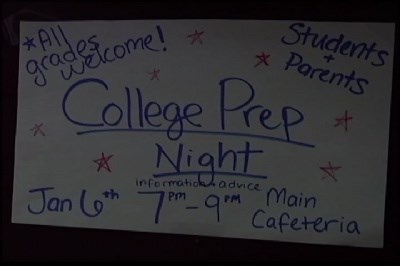 *All grades welcome!
Students + Parents
College Prep
Night
information + advice
Jan 6th 7pm - 9pm Main Cafeteria